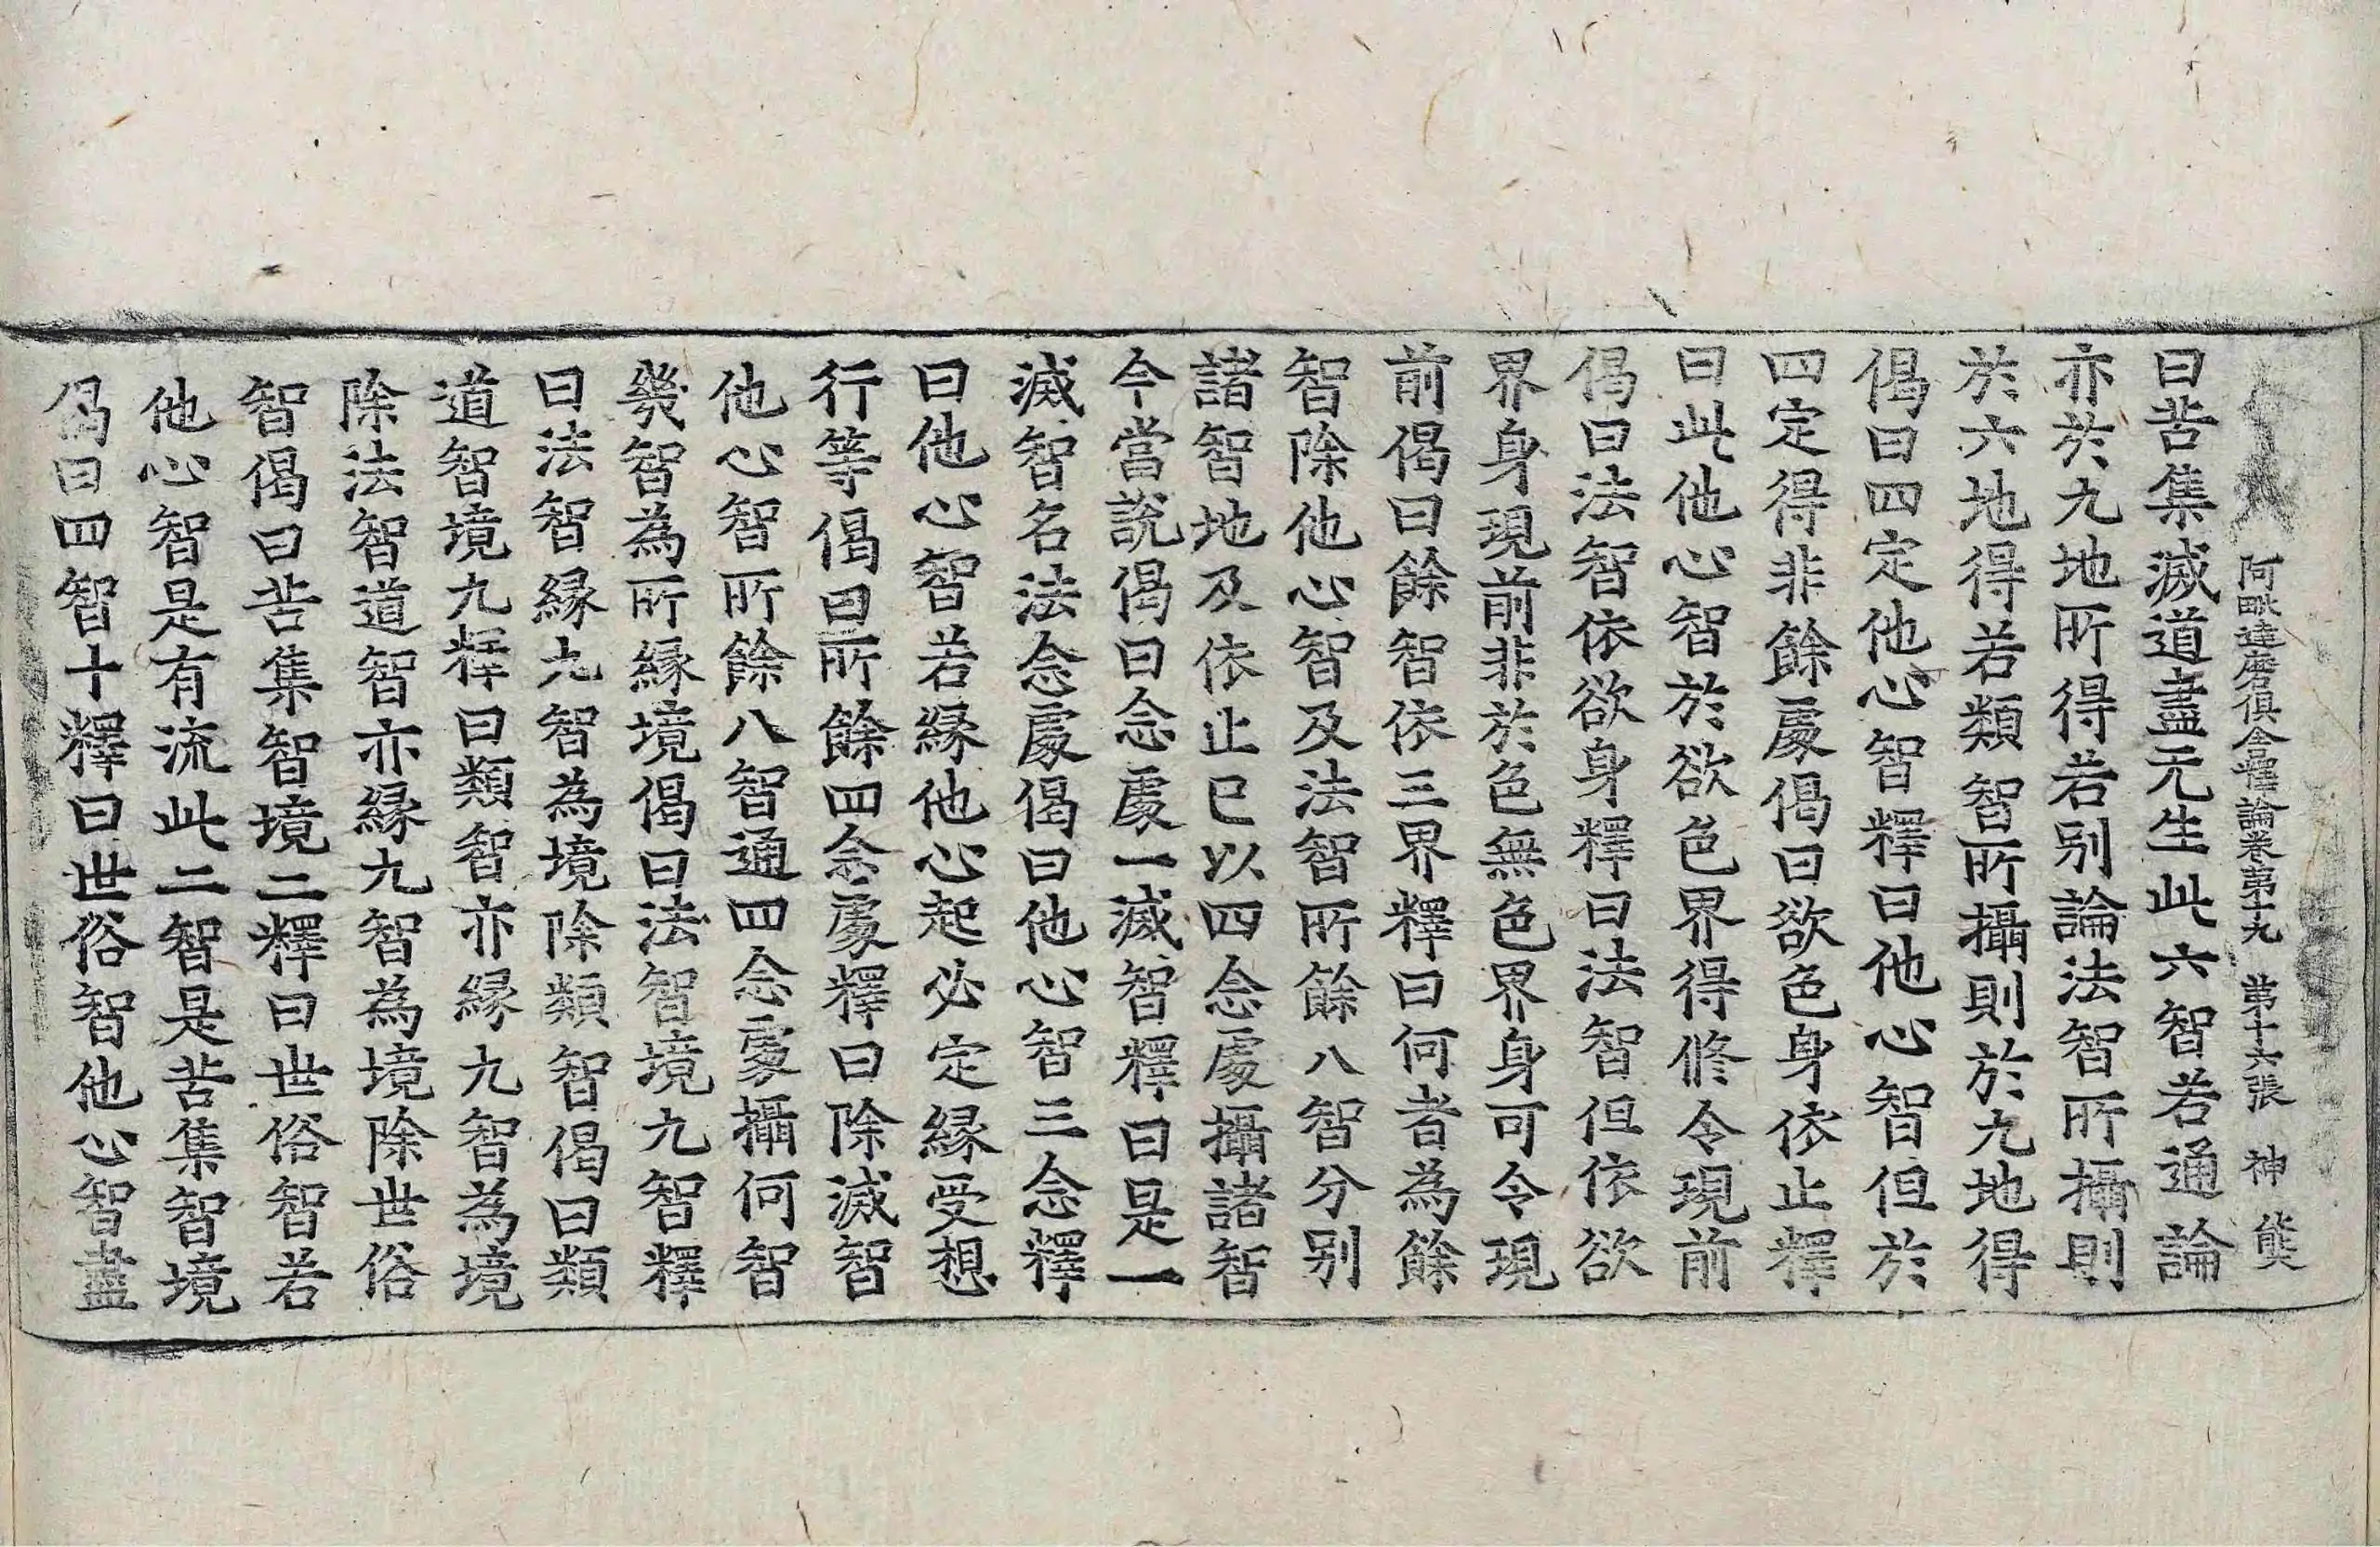 阿毗達磨俱舍釋論卷第十九 第十六張 神 熊
曰苦集滅道盡无生此六智若通論
亦於九地所得若別論法智所攝則
於六地得若類智所攝則於九地得
偈曰四定他心智釋曰他心智但於
四定得非餘處偈曰欲色身依止釋
曰此他心智於欲色界得修令現前
偈曰法智依欲身釋曰法智但依欲
界身現前非於色無色界身可令現
前偈曰餘智依三界釋曰何者為餘
智除他心智及法智所餘八智分別
諸智地及依止已以四念處攝諸智
今當說偈曰念處一滅智釋曰是一
滅智名法念處偈曰他心智三念釋
曰他心智若緣他心起必定緣受想
行等偈曰所餘四念處釋曰除滅智
他心智所餘八智通四念處攝何智
幾智為所緣境偈曰法智境九智釋
曰法智緣九智為境除類智偈曰類
道智境九釋曰類智亦緣九智為境
除法智道智亦緣九智為境除世俗
智偈曰苦集智境二釋曰世俗智若
他心智是有流此二智是苦集智境
偈曰四智十釋曰世俗智他心智盡